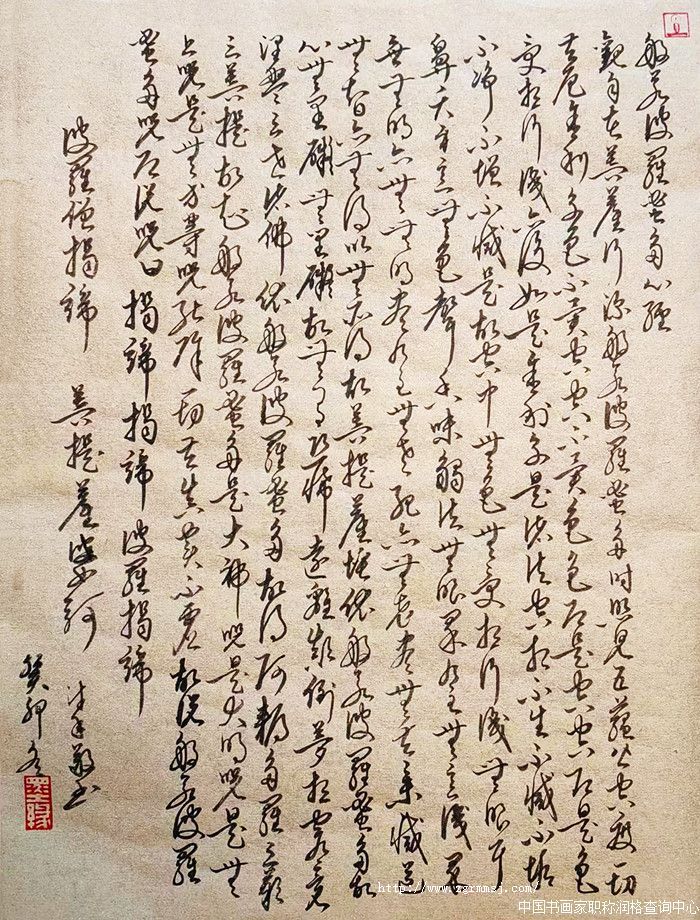 般若波羅蜜多心經
觀自在菩薩行深般若波羅蜜多時照見五蘊皆空度一切
苦厄舍利子色不異空空不異色色即是空空即是色
受想行識亦復如是舍利子是諸法空相不生不滅不垢
不淨不增不減是故空中無色無受想行識無眼耳
鼻舌身意無色聲香味觸法無眼界乃至無意識界
無無明亦無無明盡乃至無老死亦無老死盡無苦集滅道
無智亦無得以無所得故菩提薩埵依般若波羅蜜多故
心無罣礙無罣礙故無有恐怖遠離顛倒夢想究竟
涅槃三世諸佛依般若波羅蜜多故得阿耨多羅三藐
三菩提故知般若波羅蜜多是大神咒是大明咒是無
上咒是無等等咒能除一切苦真實不虛故說般若波羅
蜜多咒即說咒曰揭諦揭諦波羅揭諦
波羅僧揭諦 菩提薩婆訶
敬書
癸卯冬
http://www.zgrmmzj.com/
中国书画家职称润格查询中心